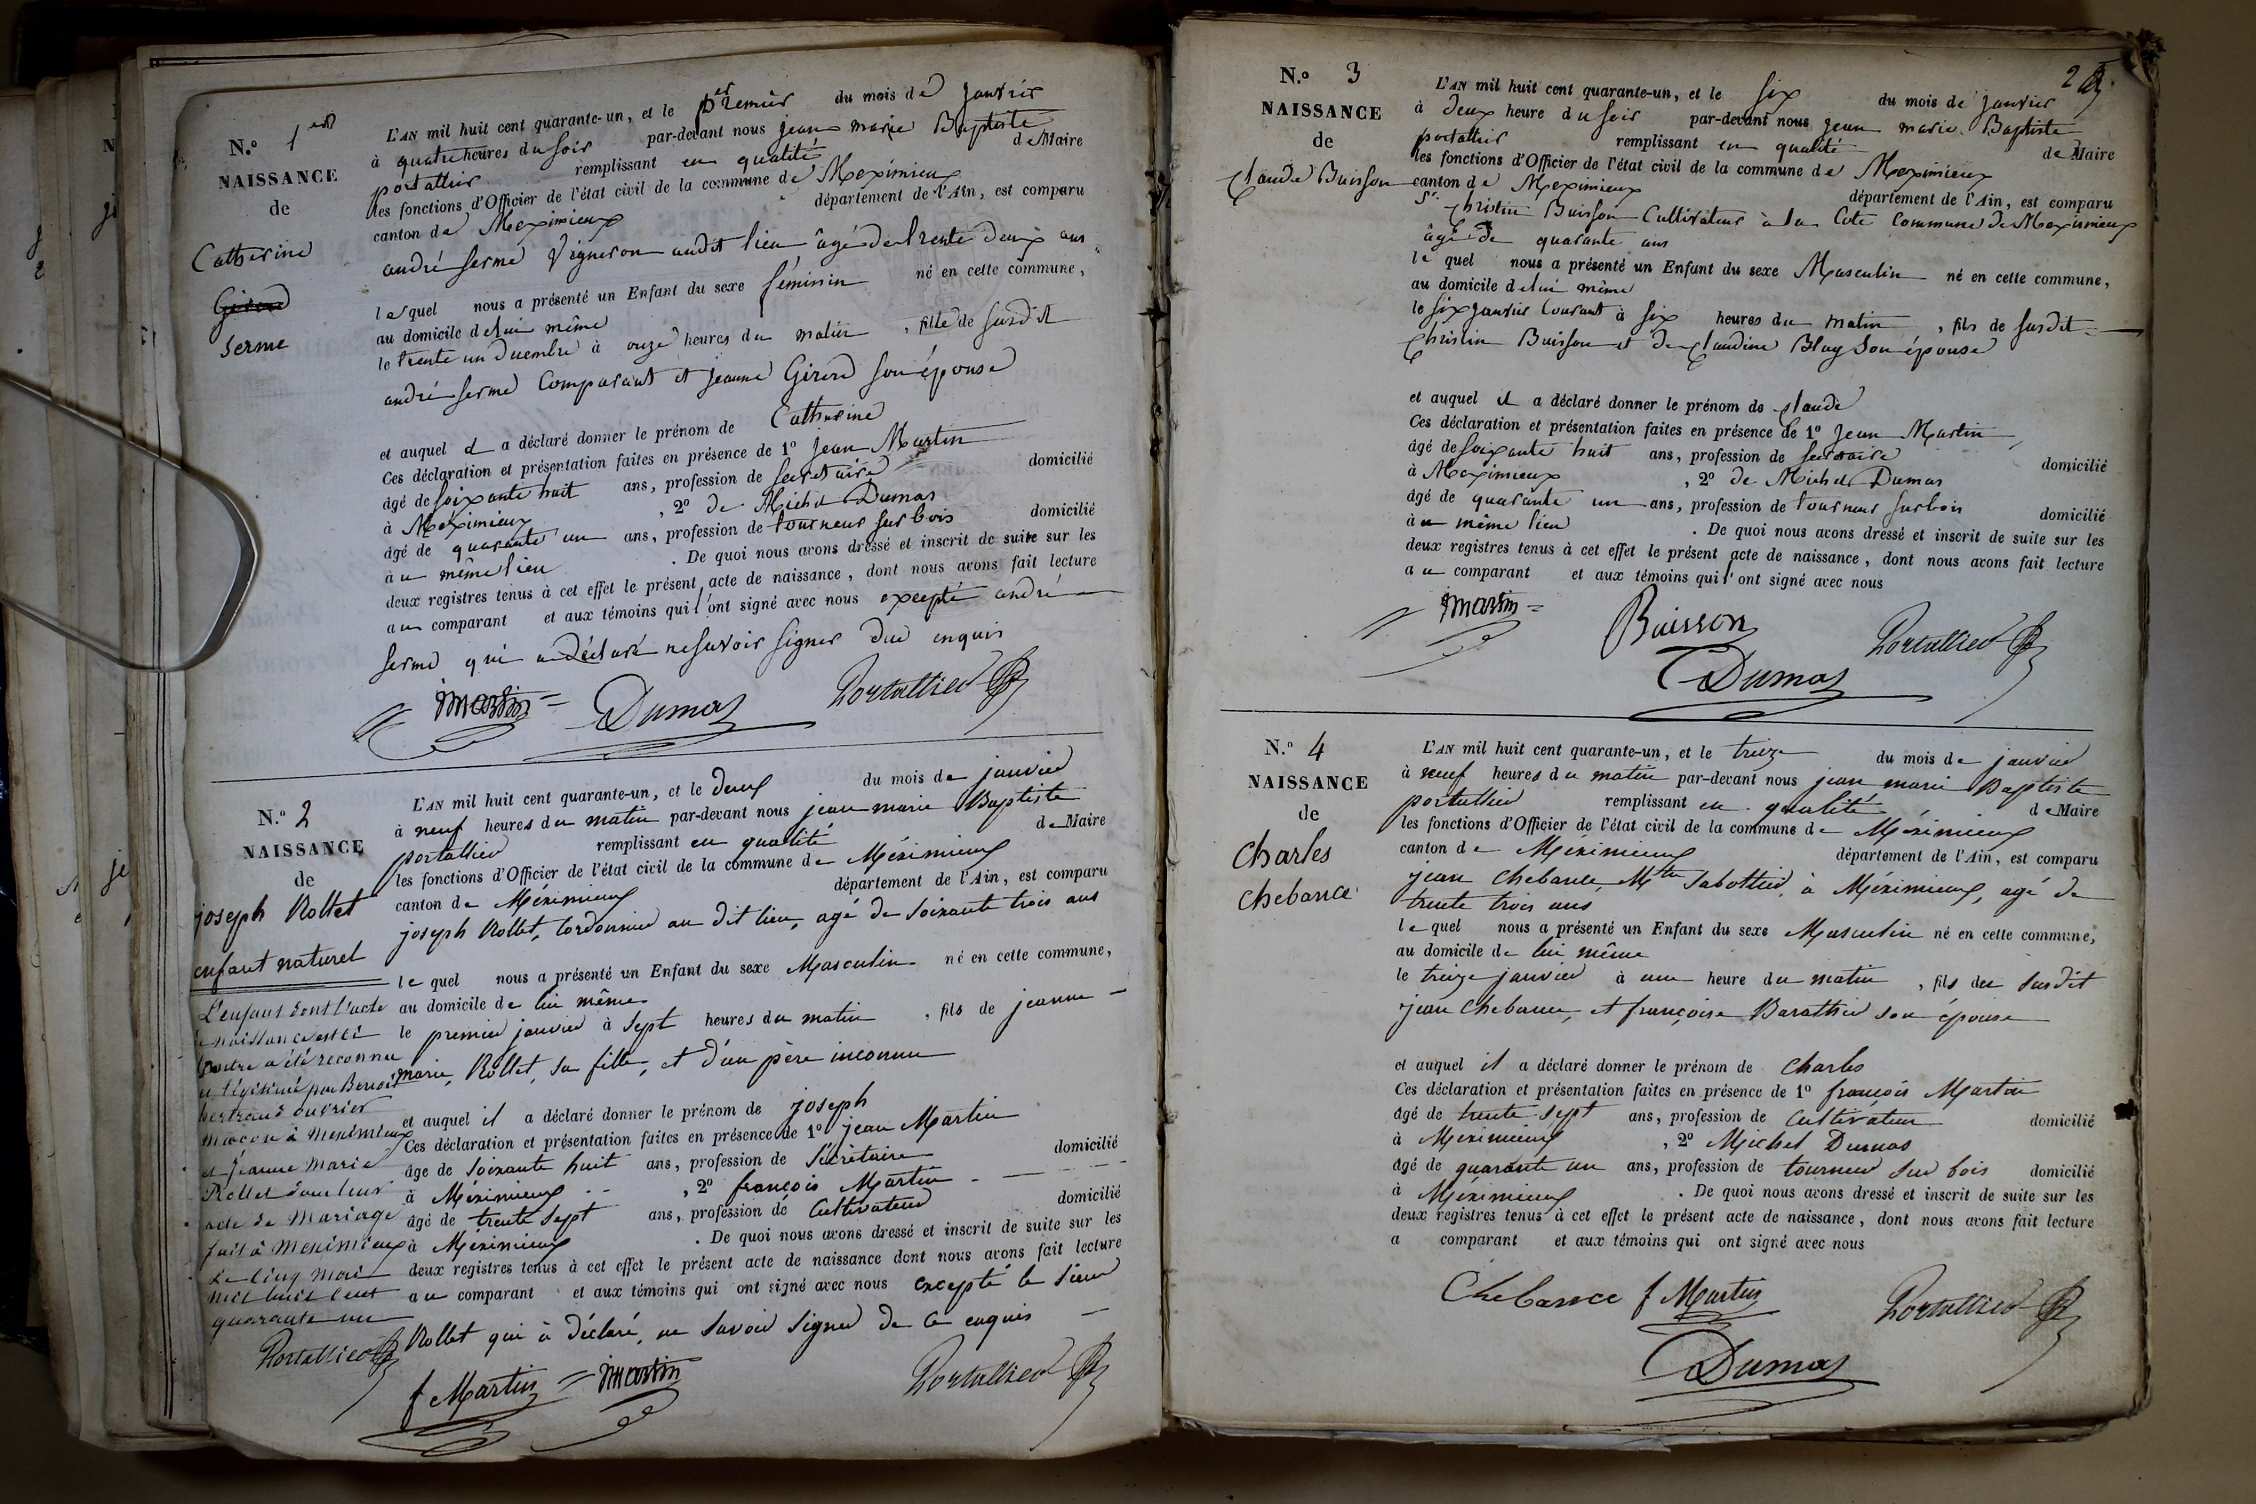 N.º 1er
NAISSANCE
de
Catherine
Girerd
serme
L'AN mil huit cent quarante-un, et le premier du mois de janvier
à quatre heures du soir par-devant nous jean marie Baptiste
portallier remplissant en qualité de Maire
les fonctions d'Officier de l'état civil de la commune de Meximieux
canton de Meximieux département de l'Ain, est comparu
andré serme Vigneron audit lieu âgé de trente deux ans
lequel nous a présenté un Enfant du sexe féminin né en cette commune,
au domicile de lui même
le trente un decembre à onze heures du matin, fille de susdit
andré serme Comparant et jeanne Girerd son épouse
et auquel il a déclaré donner le prénom de Catherine
Ces déclaration et présentation faites en présence de 1º jean Martin
âgé de soixante huit ans, profession de secretaire domicilié
à Meximieux, 2º de Michel Dumas
âgé de quarante un ans, profession de tourneur sur bois domicilié
au même lieu. De quoi nous avons dressé et inscrit de suite sur les
deux registres tenus à cet effet le présent acte de naissance, dont nous avons fait lecture
au comparant et aux témoins qui l'ont signé avec nous excepté andré
serme qui a déclaré ne savoir signer due enquis
Martin Dumas Portallier
N.º 2
NAISSANCE
de
joseph Rollet
enfant naturel
L'enfant dont l'acte
de naissance est ci
contre a été reconnu
et légitimé par Benoit
bertrand ouvrier
macon à meximieux
et Jeanne Marie
Rollet dans leur
acte de Mariage
fait à meximieux
le cinq mai
mil huit cent
quarante un
Portallier
L'AN mil huit cent quarante-un, et le deux du mois de janvier
à neuf heures du matin par-devant nous jean marie Baptiste
portallier remplissant en qualité de Maire
les fonctions d'Officier de l'état civil de la commune de Méximieux
canton de Méximieux département de l'Ain, est comparu
joseph Rollet, Cordonnier au dit lieu, agé de soixante trois ans
lequel nous a présenté un Enfant du sexe Masculin né en cette commune,
au domicile de lui même
le premier janvier à sept heures du matin, fils de jeanne
marie, Rollet, sa fille, et d'un père inconnu
et auquel il a déclaré donner le prénom de joseph
Ces déclaration et présentation faites en présence de 1º jean Martin
âge de soixante huit ans, profession de Sécrétaire domicilié
à Méximieux, 2º françois Martin
âgé de trente sept ans, profession de Cultivateur domicilié
à Méximieux. De quoi nous avons dressé et inscrit de suite sur les
deux registres tenus à cet effet le présent acte de naissance dont nous avons fait lecture
au comparant et aux témoins qui ont signé avec nous excepté le sieur
Rollet qui à déclaré, ne savoir signer de ce enquis
f Martin Martin Portallier
2
N.º 3
NAISSANCE
de
Claude Buisson
L'AN mil huit cent quarante-un, et le six du mois de janvier
à deux heure du soir par-devant nous jean marie Baptiste
portallier remplissant en qualité de Maire
les fonctions d'Officier de l'état civil de la commune de Meximieux
canton de Meximieux département de l'Ain, est comparu
Sr. Christin Buisson Cultivateur à la Cote Commune de Meximieux
âgé de quarante ans
lequel nous a présenté un Enfant du sexe Masculin né en cette commune,
au domicile de lui même
le six janvier Courant à six heures du matin, fils de susdit
Christin Buisson et de Claudine Bluy son épouse
et auquel il a déclaré donner le prénom de Claude
Ces déclaration et présentation faites en présence de 1º jean Martin
âgé de soixante huit ans, profession de secretaire domicilié
à Meximieux, 2º de Michel Dumas
âgé de quarante un ans, profession de tourneur sur bois domicilié
au même lieu. De quoi nous avons dressé et inscrit de suite sur les
deux registres tenus à cet effet le présent acte de naissance, dont nous avons fait lecture
au comparant et aux témoins qui l'ont signé avec nous
Martin Buisson Portallier
Dumas
N.º 4
NAISSANCE
de
Charles
Chebance
L'AN mil huit cent quarante-un, et le treize du mois de janvier
à neuf heures du matin par-devant nous jean marie Baptiste
portallier remplissant en qualité de Maire
les fonctions d'Officier de l'état civil de la commune de Méximieux
canton de Méximieux département de l'Ain, est comparu
jean Chebance, Mtre Sabottier, à Méximieux, agé de
trente trois ans
lequel nous a présenté un Enfant du sexe Masculin né en cette commune,
au domicile de lui même
le treize janvier à une heure du matin, fils du susdit
jean Chebance, et françoise Barathier son épouse
et auquel il a déclaré donner le prénom de Charles
Ces déclaration et présentation faites en présence de 1º françois Martin
âgé de trente sept ans, profession de Cultivateur domicilié
à Méximieux, 2º Michel Dumas
âgé de quarante un ans, profession de tourneur sur bois domicilié
à Méximieux. De quoi nous avons dressé et inscrit de suite sur les
deux registres tenus à cet effet le présent acte de naissance, dont nous avons fait lecture
a comparant et aux témoins qui ont signé avec nous
Chebance f Martin Portallier
Dumas